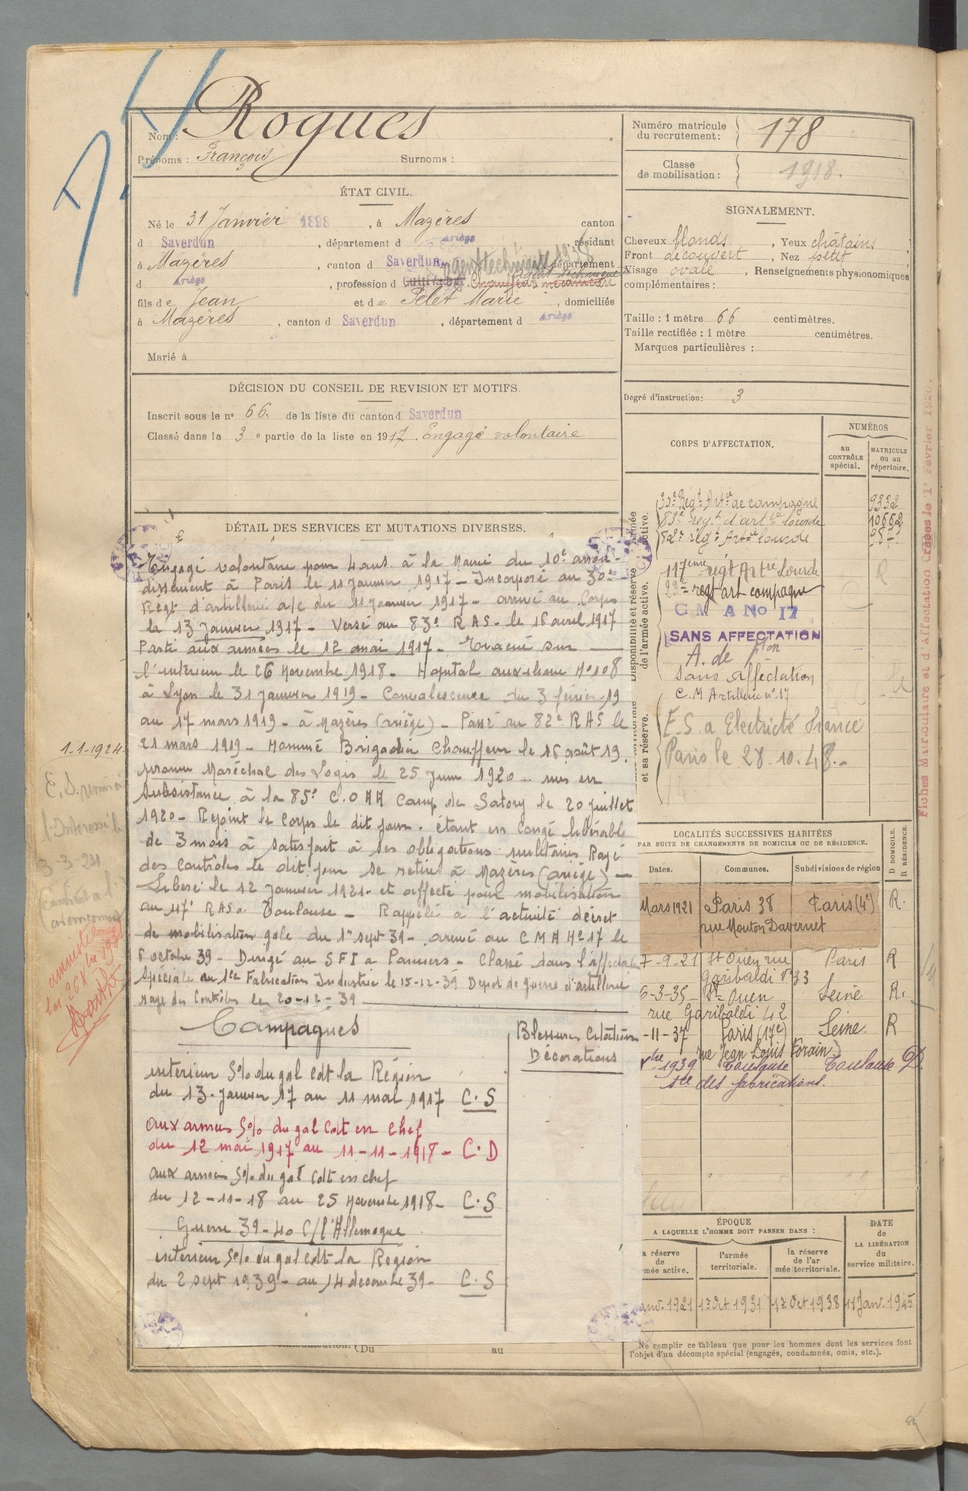 Nom : Rogues
Prénoms : François Surnoms :
ÉTAT CIVIL.
Né le 31 Janvier 1898, à Mazères canton
d Saverdun, département d Ariège, résidant
à Mazères, canton d Saverdun, département
d Ariège, profession d Cultivateur Chauffeur mécanicien
fils de Jean et de Pelet Marie, domiciliés
à Mazères, canton d Saverdun, département d Ariège
Marié à
DÉCISION DU CONSEIL DE REVISION ET MOTIFS.
Inscrit sous le n° 66 de la liste du canton d Saverdun
Classé dans la 3e partie de la liste en 1917. Engagé volontaire
DÉTAIL DES SERVICES ET MUTATIONS DIVERSES.
Engagé volontaire pour 4 ans à la Mairie du 10e arron-
dissement à Paris le 11 Janvier 1917 - Incorporé au 30e
Regt d'artillerie a/c du 11 Janvier 1917 - arrivé au Corps
le 13 Janvier 1917 - Versé au 83e R A S. le 16 avril 1917
Parti aux armées le 12 mai 1917 - Evacué sur
l'intérieur le 26 Novembre 1918 - Hopital auxiliaire N° 108
à Lyon le 31 Janvier 1919 - Convalescence du 3 février 19
au 17 mars 1919 - à Mazères (ariège) - Passé au 82e R A S le
21 mars 1919 - Nommé Brigadier Chauffeur le 16 août 19.
promu Maréchal des Logis le 25 Juin 1920 - mis en
Subsistance à la 85e C.O A A Camp de Satory le 20 juillet
1920 - Rejoint le Corps le dit jour. étant en congé libérable
de 3 mois à satisfait à ses obligations militaires. Rayé
des controles le dit jour se retire à Mazères (ariège) -
Liberé le 12 Janvier 1921 - et affecté pour mobilisation
au 117e R A S a Toulouse - Rappelé à l'activité décret
de mobilisation gale du 1er sept 39 - arrivé au C M A N° 17 le
octobre 39 - Dirigé au S F I à Pamiers - Classé dans l'affectation
Spéciale au 1ee Fabrication Industrie le 15-12-39 Depot de guerre d'artillerie
rayé des Controles le 20-12-39
Campagnes
Blessures Citation
Décorations
intérieur S% du gal Cdt la Région
du 13 Janvier 17 au 11 mai 1917 C.S
aux armées S% du gal Cdt en Chef
du 12 mai 1917 au 11-11-1918 - C.D
aux armées S% du gal Cdt en chef
du 12-11-18 au 25 Novembre 1918 - C.S
Guerre 39-40 C/ l'Allemagne
intérieur S% du gal Cdt la Région
du 2 sept 1939 - au 14 decembre 39 - C.S
(Du au
1.1.1924
3-3-24
amnistie
Numéro matricule
du recrutement : 178
Classe
de mobilisation : 1918.
SIGNALEMENT.
Cheveux blonds, Yeux châtains
Front découvert, Nez petit
Visage ovale, Renseignements physionomiques
complémentaires :
Taille : 1 mètre 66 centimètres.
Taille rectifiée : 1 mètre centimètres.
Marques particulières :
Degré d'instruction : 3
CORPS D'AFFECTATION.
NUMÉROS
au CONTRÔLE spécial.
MATRICULE ou au répertoire.
30e Régt Artie de campagne 9352
83e regt d'artie lourde 10682
82e regt Artie Lourde
117ème régt Artie Lourde
23e regt art campagne
C M A No 17
SANS AFFECTATION
Sans affectation
C.M Artillerie n° 17
E.S. a Electricité France
Paris le 28.10.48.-
Disponibilité et réserve
de l'armée active.
et sa réserve.
LOCALITÉS SUCCESSIVES HABITÉES
PAR SUITE DE CHANGEMENTS DE DOMICILE OU DE RÉSIDENCE.
Dates. Communes. Subdivisions de région D DOMICILE. R RÉSIDENCE.
Mars 1921 Paris 38 Paris (4e) R.
rue Mouton Duvernet
7-9-21 St Ouen rue Paris R
Garibaldi n° 33
6-3-35 - St Ouen Seine R.
rue Garibaldi 42
-11-37 Paris (17e) Seine R
rue Jean Louis Forain
1939 Toulouse Toulouse D.
Ste des fabrications.
ÉPOQUE
A LAQUELLE L'HOMME DOIT PASSER DANS :
DATE
DE LA LIBÉRATION
du
service militaire.
la réserve de l'armée active.
l'armée territoriale.
la réserve de l'armée territoriale.
Janv. 1921 1er Oct 1931 1er Oct 1938 11 Janv. 1945
Ne remplir ce tableau que pour les hommes dont les services font
l'objet d'un décompte spécial (engagés, condamnés, omis, etc.).
Fiches Matriculaire et d'Affectation Créées le 1er Février 1926.